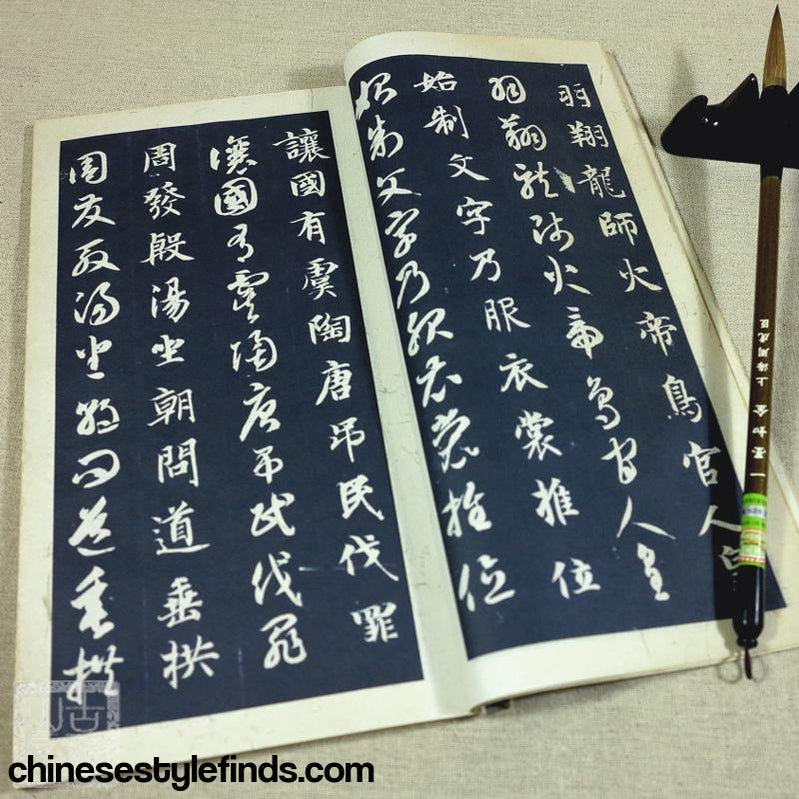 羽翔龍師火帝鳥官人皇
羽翔龍師火帝鳥官人皇
始制文字乃服衣裳推位
始制文字乃服衣裳推位
讓國有虞陶唐吊民伐罪
讓國有虞陶唐吊民伐罪
周發殷湯坐朝問道垂拱
周發殷湯坐朝問道垂拱
一墨如金 上海周虎臣
chinesestylefinds.com